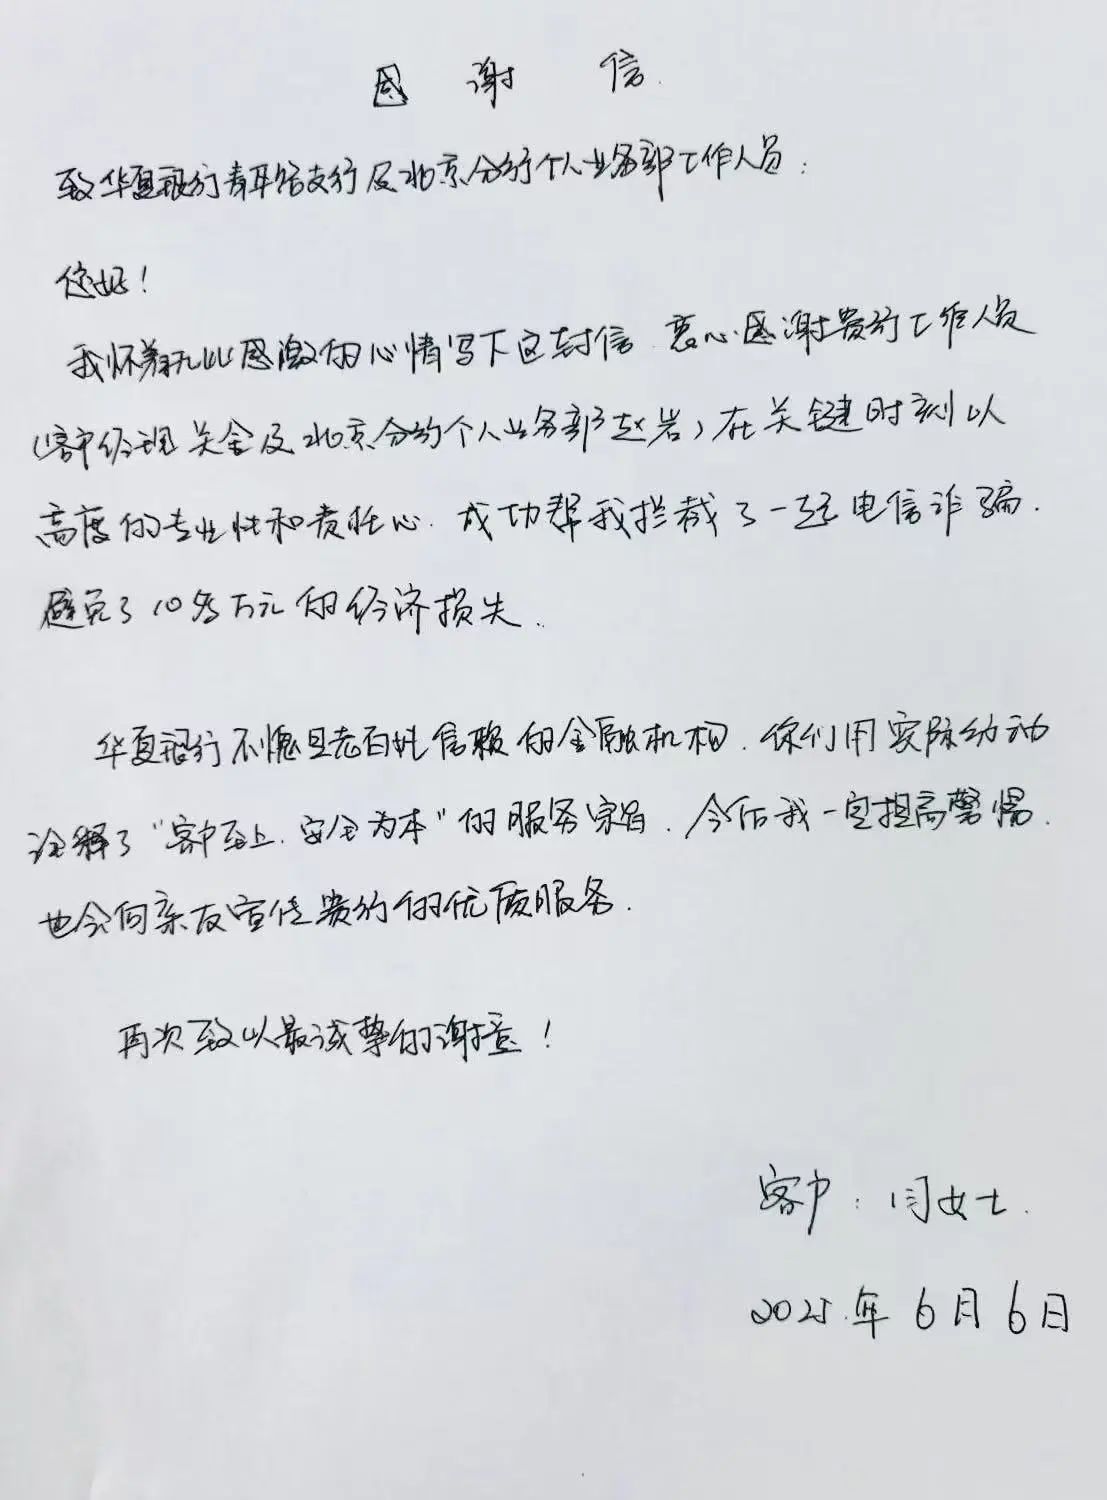 感谢信
致华夏银行青年路支行及北京分行个人业务部工作人员：
您好！
我怀着无比感激的心情写下这封信，衷心感谢贵行工作人员
（客户经理关金及北京分行个人业务部赵岩）在关键时刻以
高度的专业性和责任心，成功帮我拦截了一起电信诈骗，
避免了10多万元的经济损失。
华夏银行不愧是老百姓信赖的金融机构，你们用实际行动
诠释了“客户至上，安全为本”的服务宗旨，今后我一定提高警惕，
也会向亲友宣传贵行的优质服务。
再次致以最诚挚的谢意！
客户：闫女士
2025年6月6日